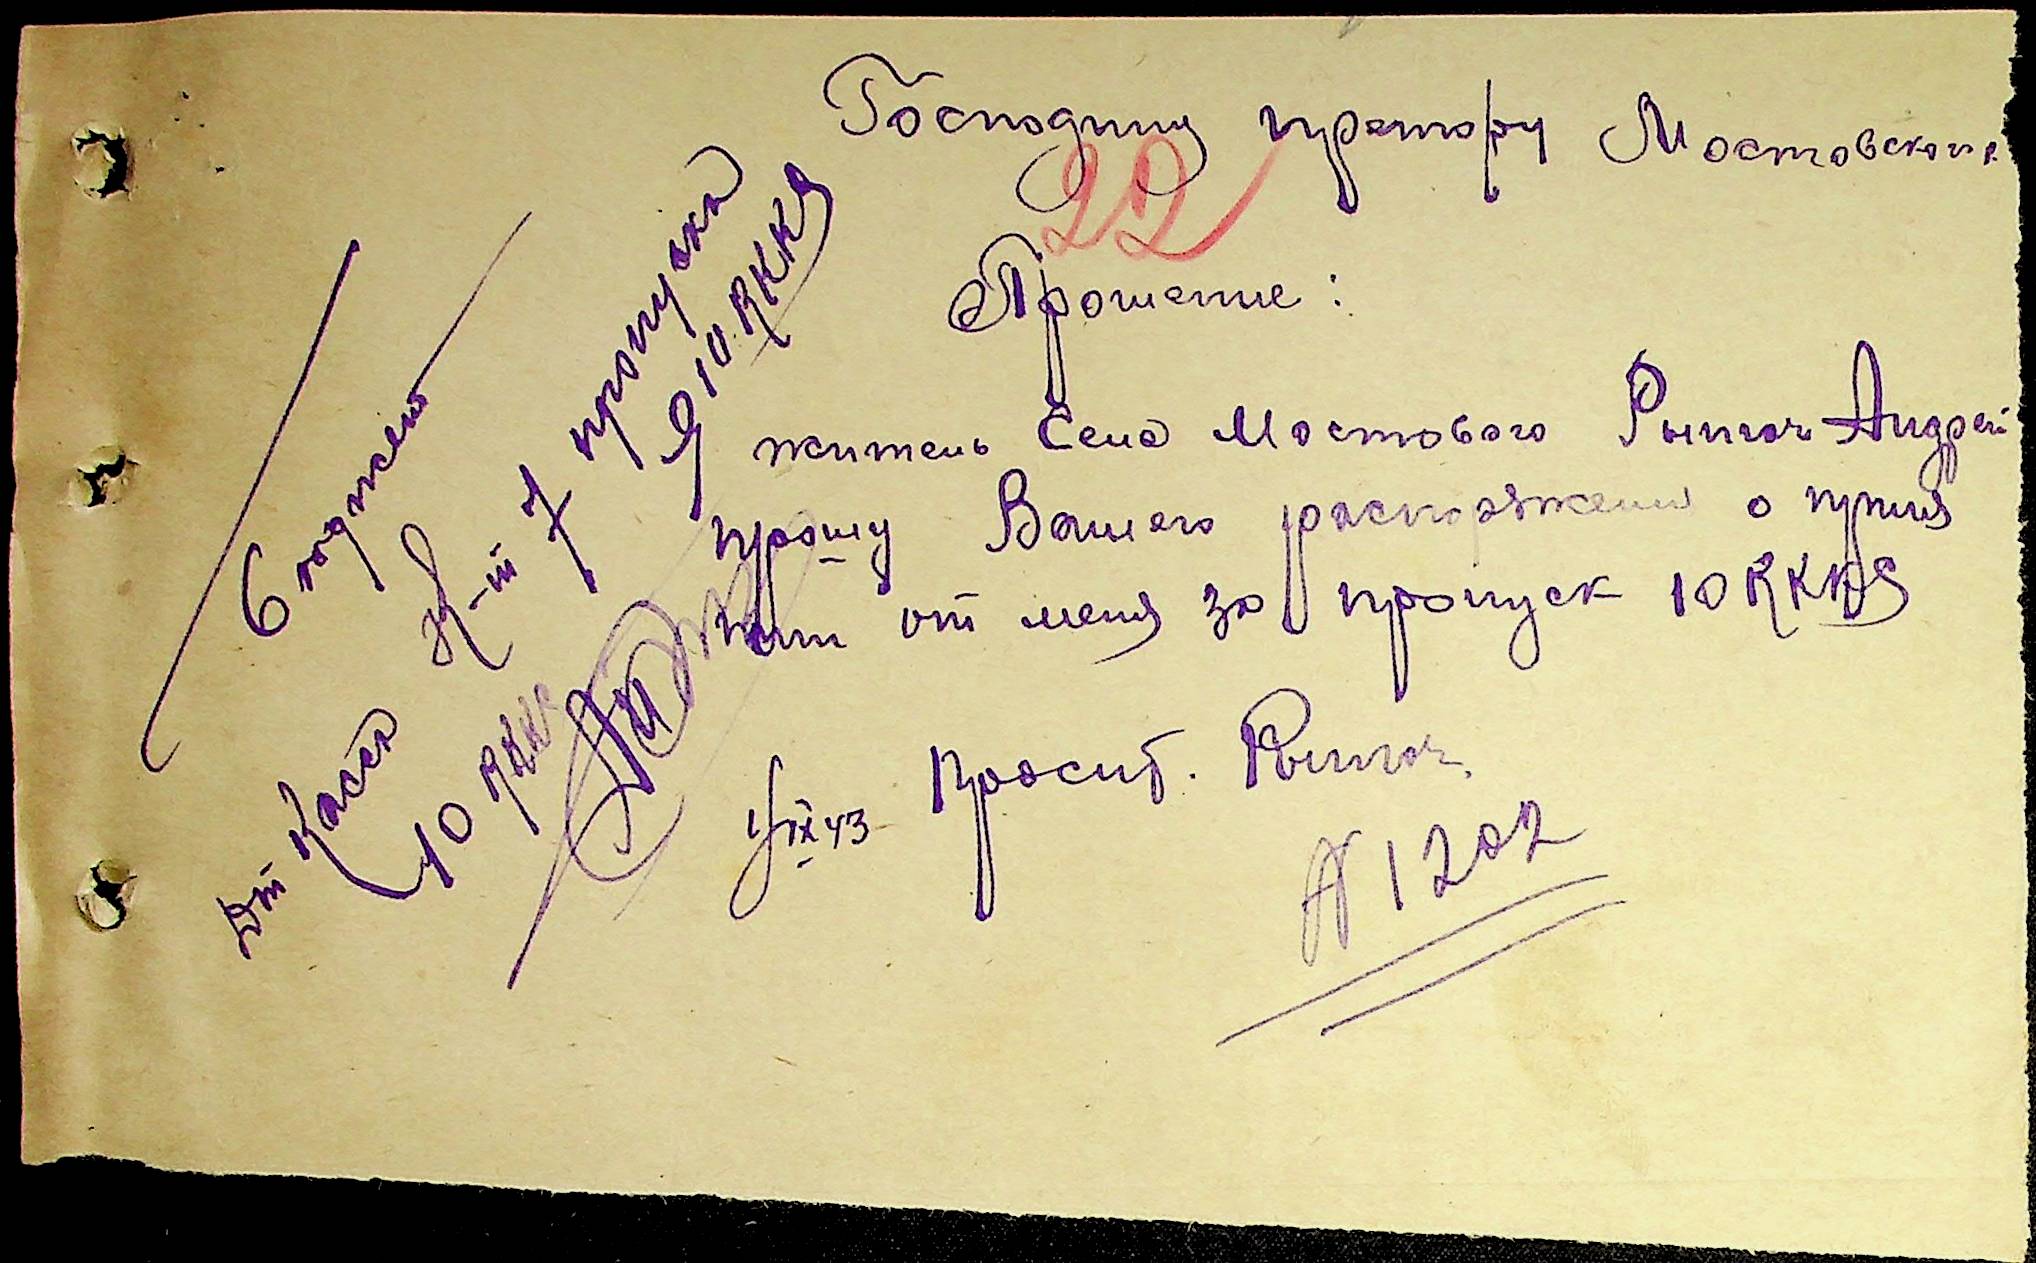 Господину претору Мостовского
22
Прошение:
житель села Мостового Рыпгоч Андрей
прошу Вашего распоряжения о приня
тии от меня за пропуск 10 RKKS
Просит. Рыпгоч
IX 43
N 1202
В бюджет
К-т 7 пропуска
9 10 RKKS
Дт Касса
10 RKKS